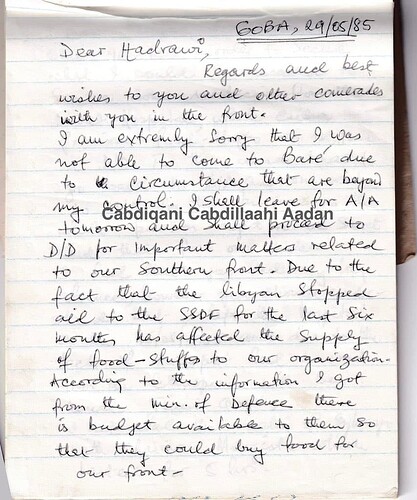 GOBA, 29/05/85
Dear Hadrawi,
Regards and best
wishes to you and other comerades
with you in the front.
I am extremly sorry that I was
not able to come to Baré due
to circumstance that are beyond
my control. I shall leave for A/A
Cabdiqani Cabdillaahi Aadan
tomorrow and shall proceed to
D/D for important matters related
to our Southern front. Due to the
fact that the libyan stopped
aid to the SSDF for the last six
months has affected the supply
of food-stuffs to our organization.
According to the information I got
from the Min. of Defence there
is budget available to them so
that they could buy food for
our front-